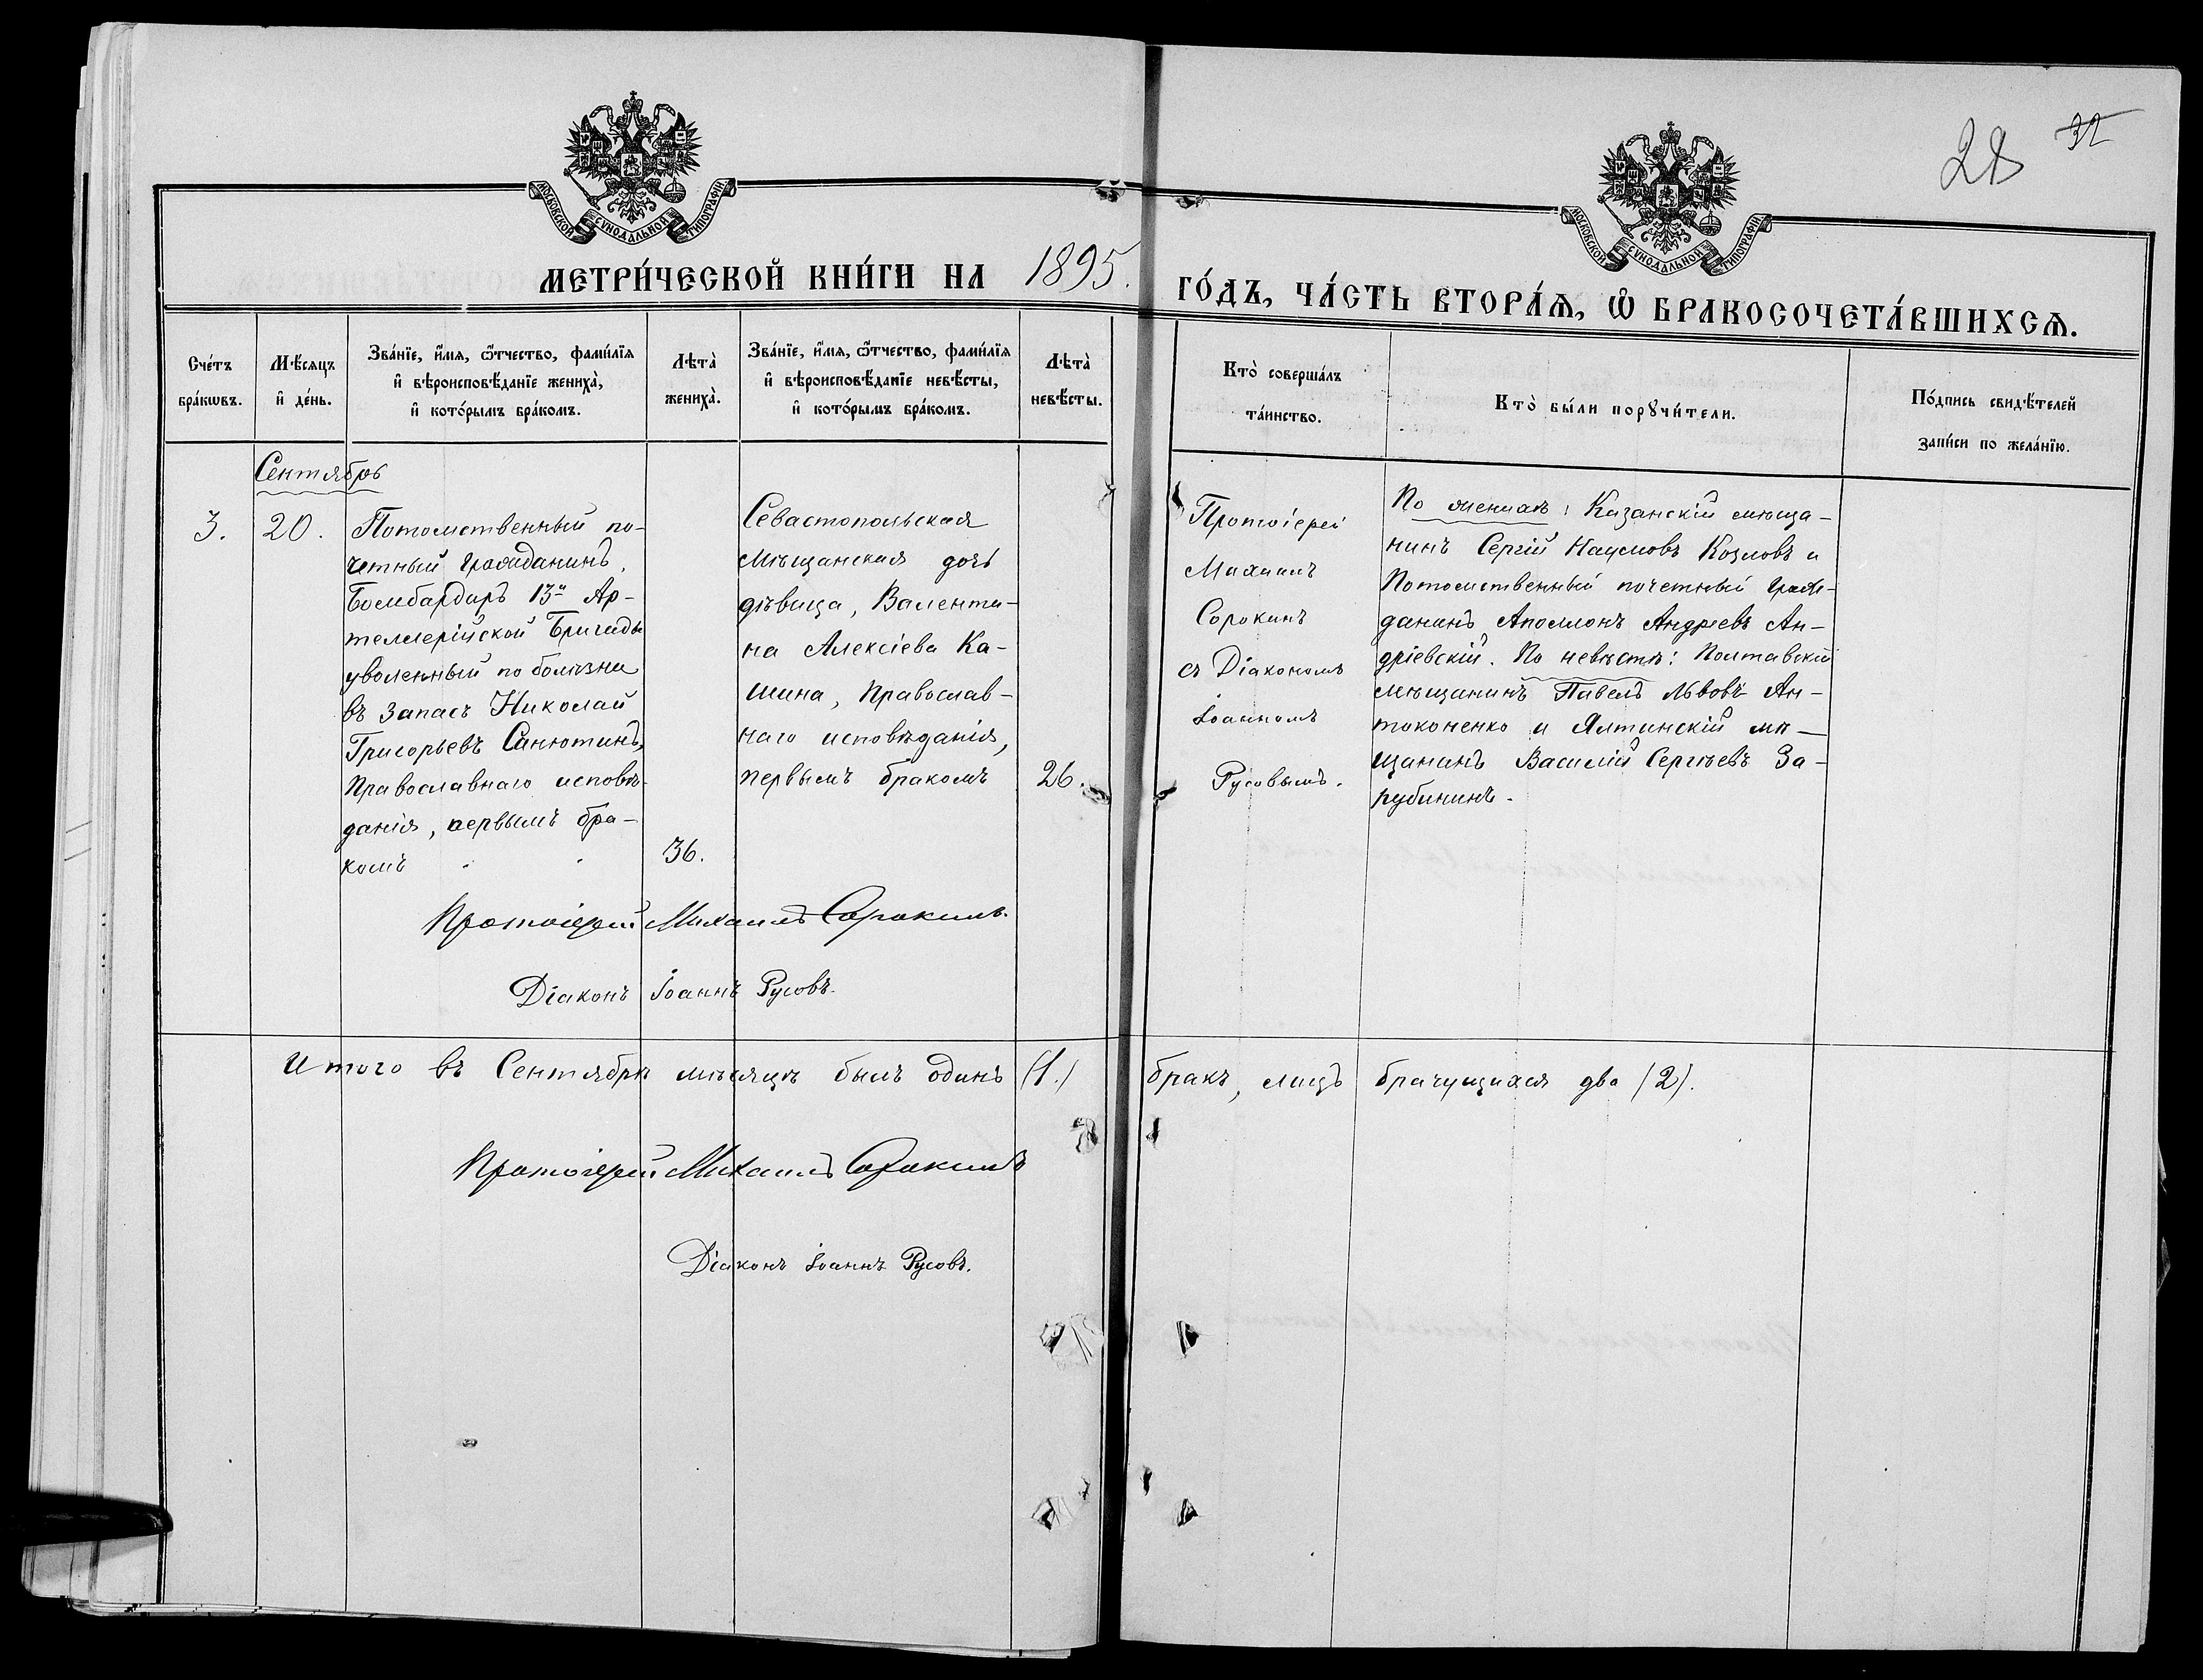 28 32
МОСКОВСКОЙ СѴНОДАЛЬНОЙ ТИПОГРАФІИ
МОСКОВСКОЙ СѴНОДАЛЬНОЙ ТИПОГРАФІИ
МЕТРИ́ЧЕСКОЙ КНИ́ГИ НА 1895. ГО́ДЪ, ЧА́СТЬ ВТОРА́Ѧ, Ѡ҆ БРАКОСОЧЕТА́ВШИХСѦ.
Сче́тъ
бра́кѡвъ.
Мѣ́сяцъ
и҆ де́нь.
Зва́нїе, и҆́мя, ѻ҆́тчество, фами́лїя
и҆ вѣроисповѣ́данїе жениха̀,
и҆ кото́рымъ бра́комъ.
Лѣта̀
жениха̀.
Зва́нїе, и҆́мя, ѻ҆́тчество, фами́лїя
и҆ вѣроисповѣ́данїе невѣ́сты,
и҆ кото́рымъ бра́комъ.
Лѣта̀
невѣ́сты.
Кто̀ соверша́лъ
та́инство.
Кто̀ бы́ли порꙋчи́тели.
По́дпись свидѣ́телей
за́писи по жела́нїю.
Сентябрь
3.
20.
Потомственный по-
четный гражданинъ,
Бомбардиръ 13й Ар-
теллерійской Бригады
уволенный по болѣзни
въ запасъ Николай
Григорьевъ Санютинъ,
Православнаго исповѣ-
данія, первымъ бра-
комъ
36.
Севастопольская
мѣщанская дочь
дѣвица, Валенти-
на Алексіева Ка-
шина, Православ-
наго исповѣданія,
первымъ бракомъ
26.
Протоіерей
Михаилъ
Сорокинъ
съ Діакономъ
Іоанномъ
Русовымъ.
По женихѣ: Казанскій мѣща-
нинъ Сергій Наумовъ Козловъ и
Потомственный почетный граж-
данинъ Аполлонъ Андреевъ Ан-
дріевскій. По невѣстѣ: Полтавскій
мѣщанинъ Павелъ Львовъ Ан-
токоненко и Ялтинскій мѣ-
щанинъ Василій Сергѣевъ За-
рубининъ.
Протоіерей Михаилъ Сорокинъ.
Діаконъ Іоаннъ Русовъ.
Итого въ Сентябрѣ мѣсяцѣ былъ одинъ (1.) бракъ, лицъ брачущихся два (2).
Протоіерей Михаилъ Сорокинъ
Діаконъ Іоаннъ Русовъ.